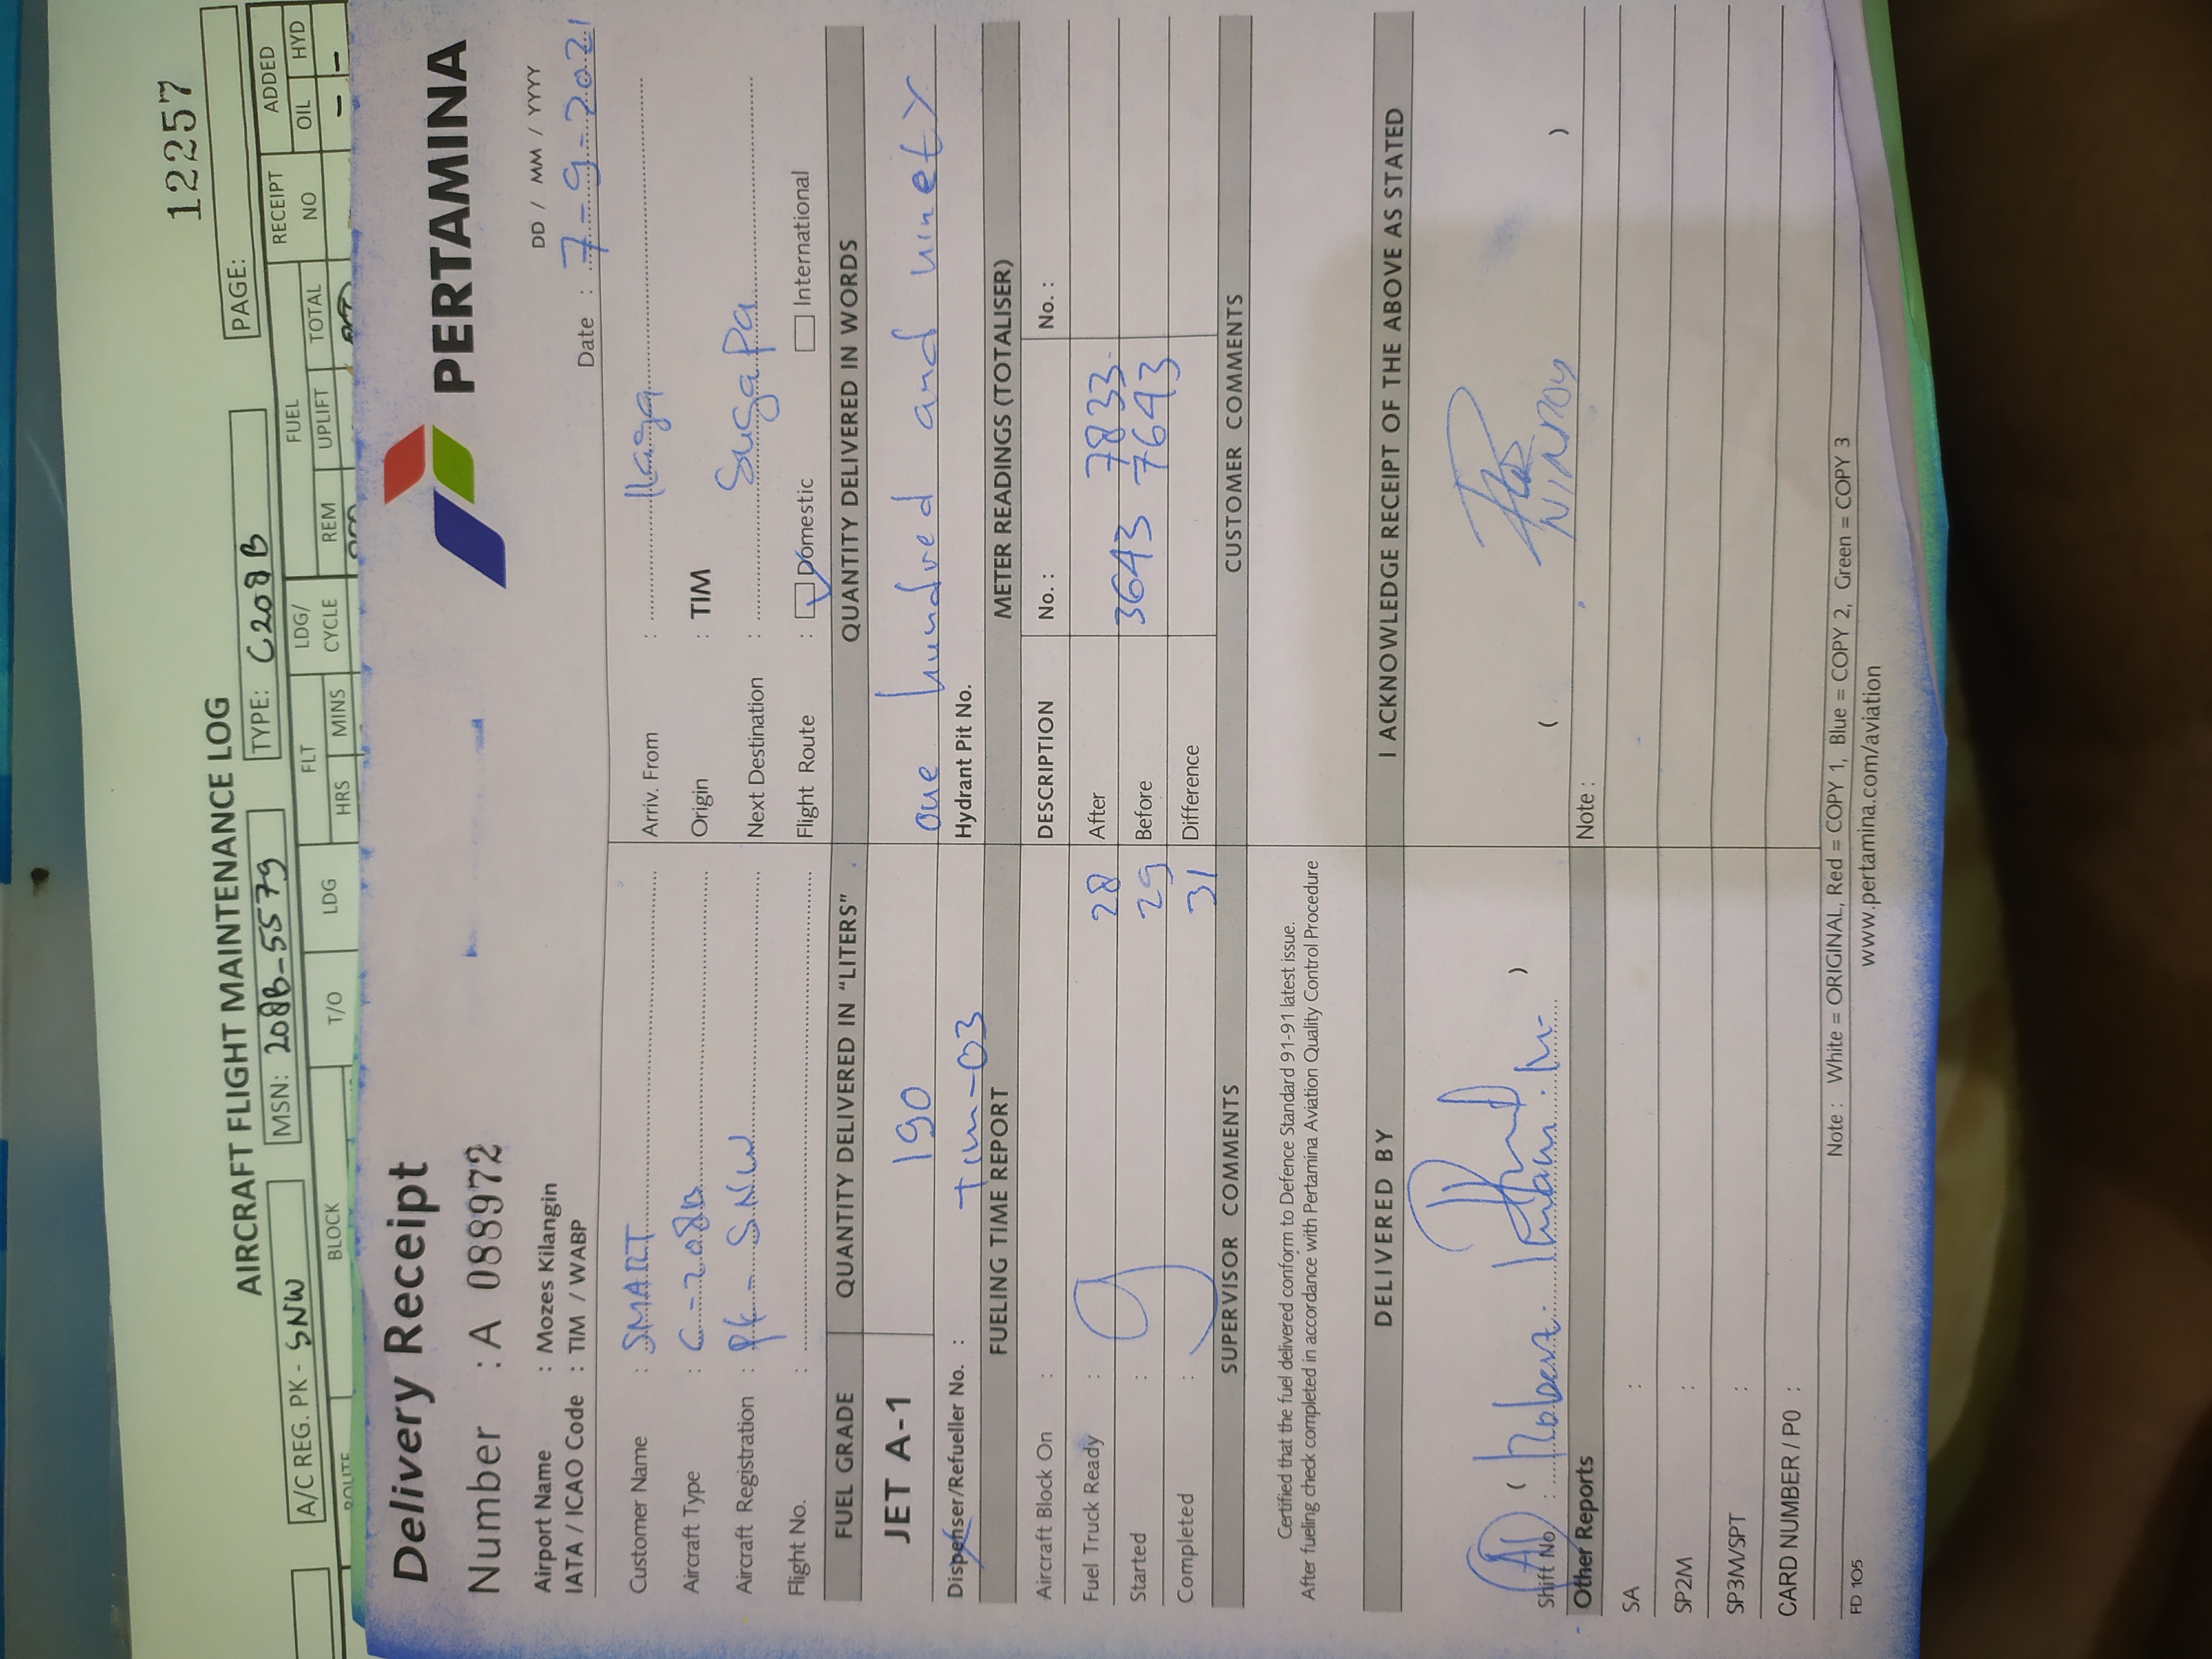 12257
AIRCRAFT FLIGHT MAINTENANCE LOG
A/C REG. PK - SNW
MSN: 208B-5579
TYPE: C208B
PAGE:
ROUTE
BLOCK
T/O
LDG
FLT
HRS
MINS
LDG/
CYCLE
FUEL
REM
UPLIFT
TOTAL
RECEIPT
NO
ADDED
OIL
HYD
- -
Delivery Receipt
PERTAMINA
Number : A 088972
Airport Name : Mozes Kilangin
IATA / ICAO Code : TIM / WABP
DD / MM / YYYY
Date : 7-9-2021
Customer Name : SMART
Arriv. From : Ilaga
Aircraft Type : C-208B
Origin : TIM
Aircraft Registration : PK-SNW
Next Destination : Sugapa
Flight No. :
Flight Route : Domestic International
FUEL GRADE
QUANTITY DELIVERED IN "LITERS"
QUANTITY DELIVERED IN WORDS
JET A-1
190
One hundred and ninety
Dispenser/Refueller No. : Tim-03
Hydrant Pit No.
FUELING TIME REPORT
METER READINGS (TOTALISER)
Aircraft Block On :
DESCRIPTION
No. :
No. :
Fuel Truck Ready : 28
After
7833
Started : 29
Before
3643 7643
Completed : 31
Difference
SUPERVISOR COMMENTS
CUSTOMER COMMENTS
Certified that the fuel delivered conform to Defence Standard 91-91 latest issue.
After fueling check completed in accordance with Pertamina Aviation Quality Control Procedure
DELIVERED BY
I ACKNOWLEDGE RECEIPT OF THE ABOVE AS STATED
Shift No :
( )
( )
Other Reports
Note :
SA :
SP2M :
SP3M/SPT :
CARD NUMBER / P0 :
Note : White = ORIGINAL, Red = COPY 1, Blue = COPY 2, Green = COPY 3
FD 105
www.pertamina.com/aviation